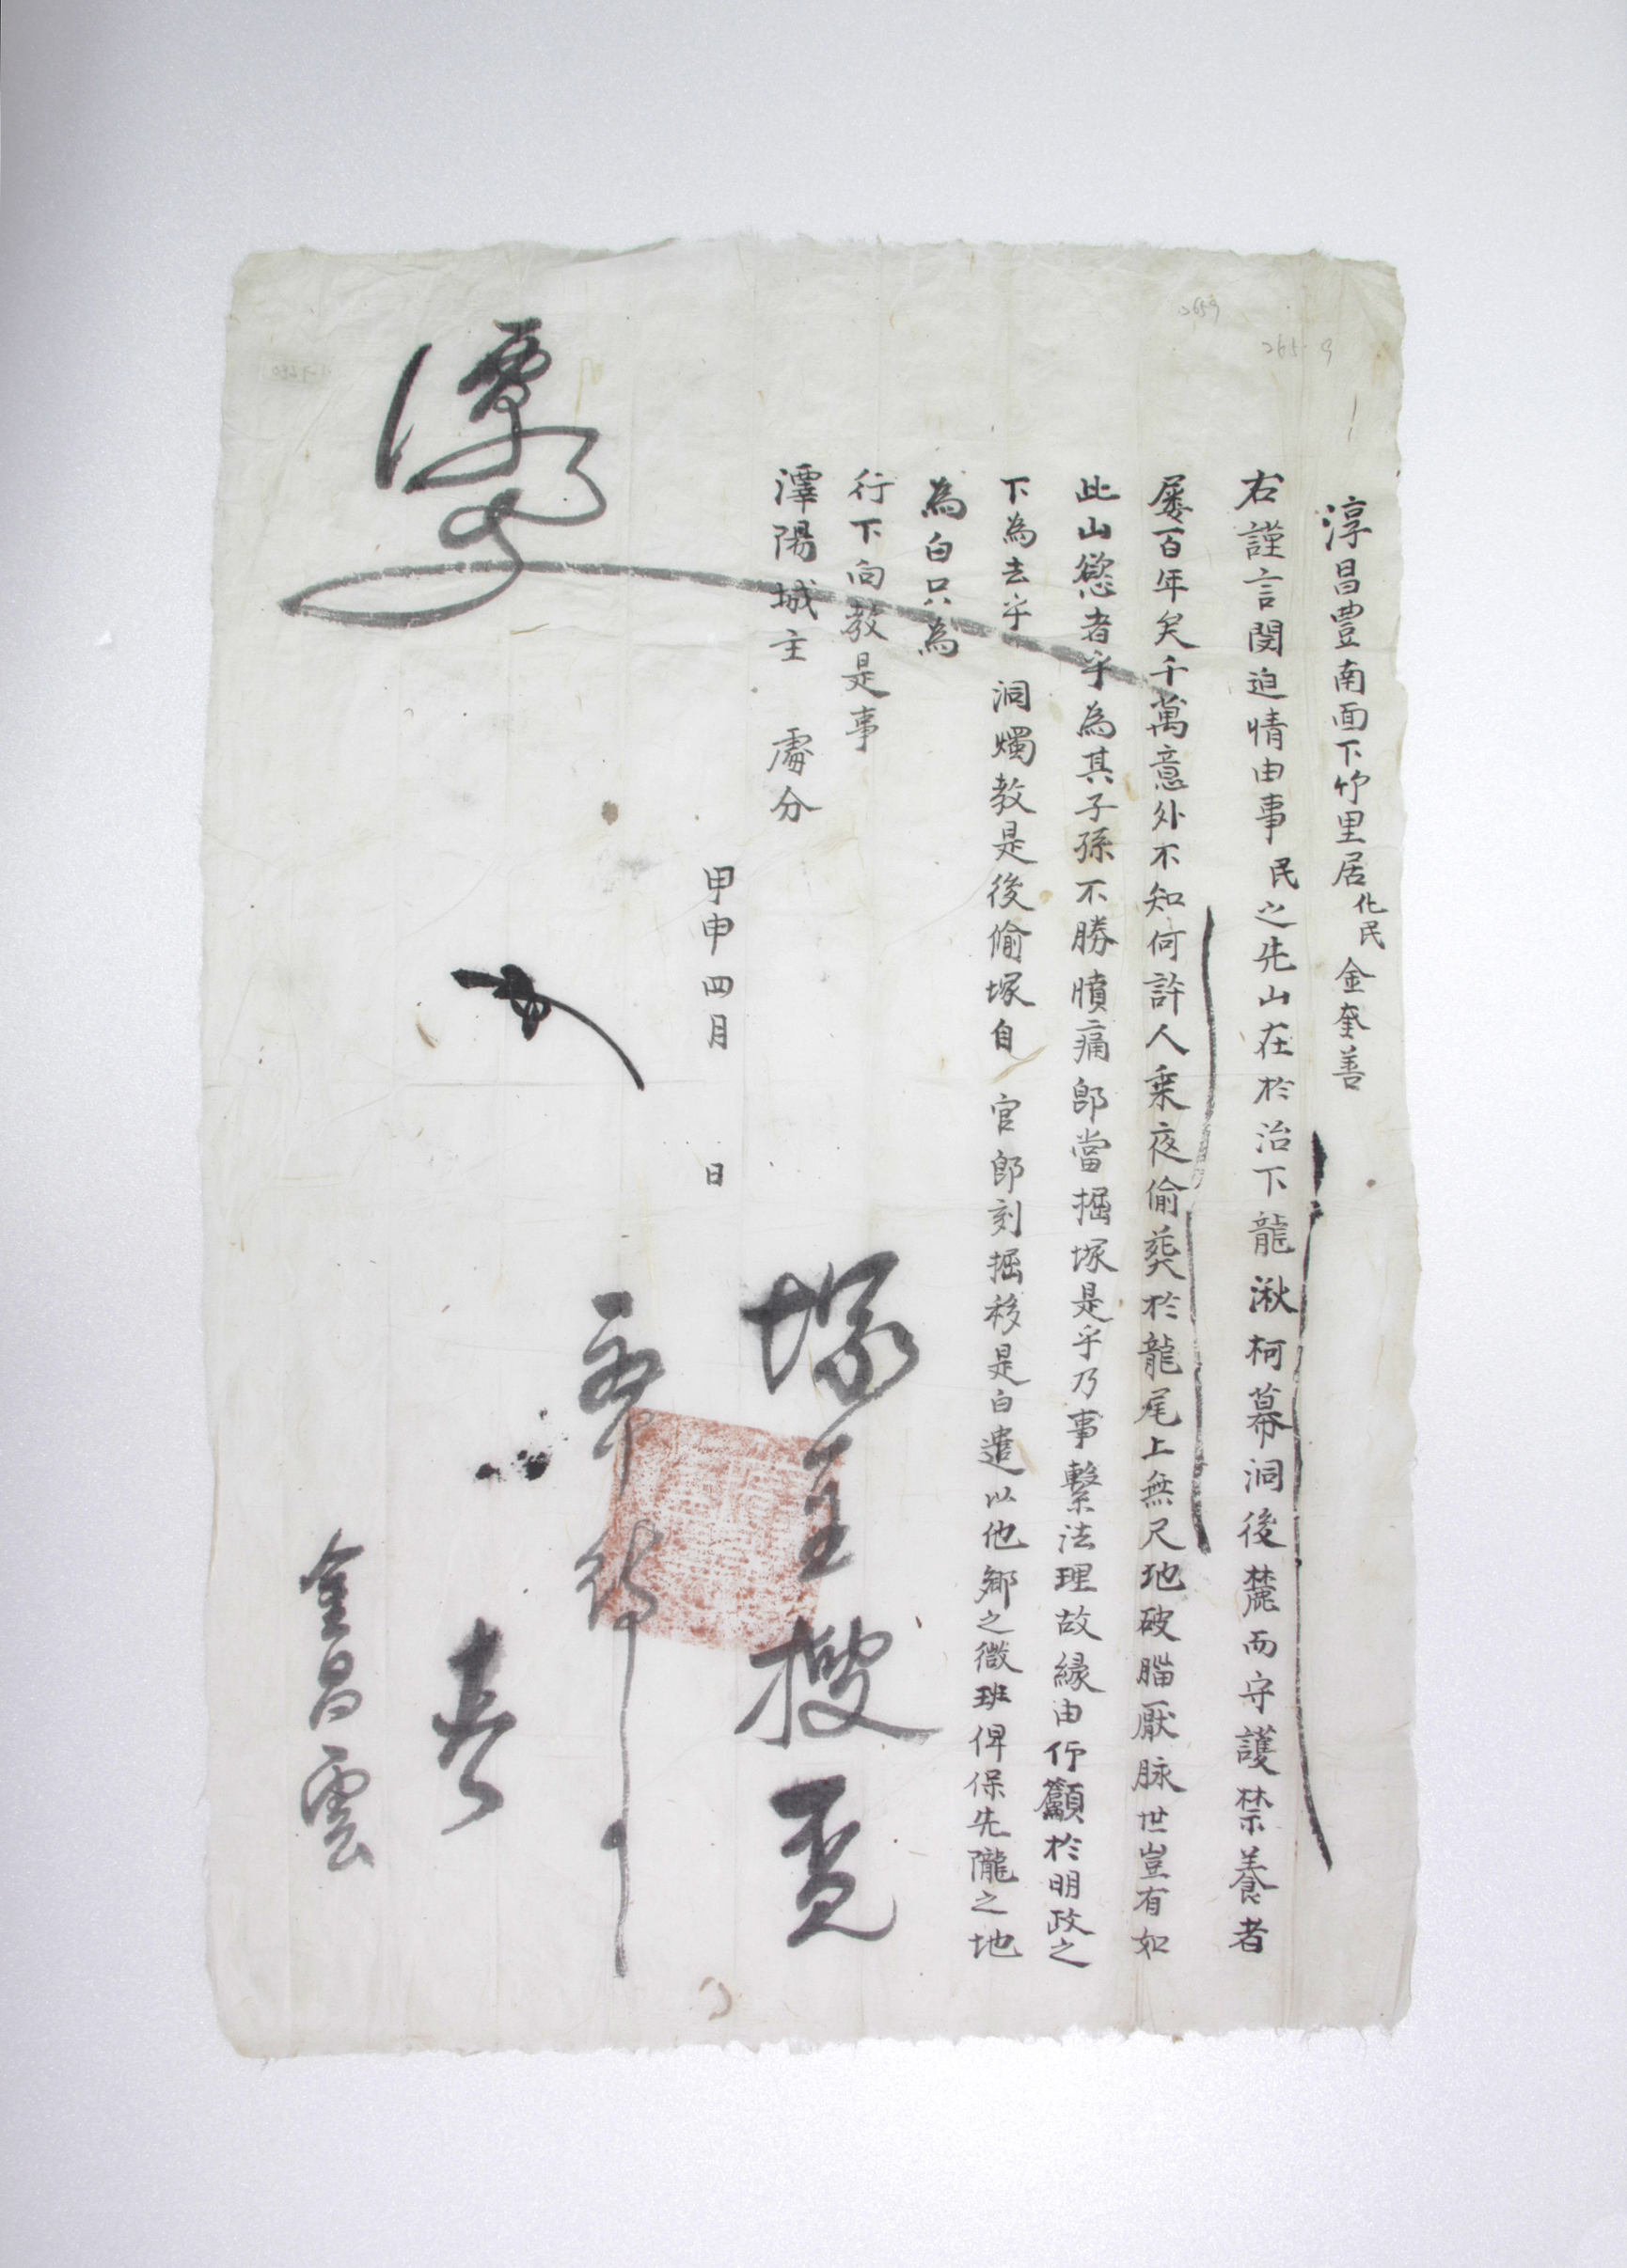 淳昌豊南面下竹里居化民金奎善
右謹言閔迫情由事民之先山在於治下龍湫柯幕洞後麓而守護禁養者
屡百年矣千萬意外不知何許人乗夜偷葬於龍尾上無尺地破腦厭脉世豈有如
此山慾者乎為其子孫不勝憤痛卽當掘塚是乎乃事繫法理故緣由仰籲於明政之
下為去乎 洞燭教是後偷塚自 官卽刻掘移是白遣以他鄕之微班俾保先隴之地
為白只為
行下向教是事
潭陽城主 處分
甲申四月 日
塚主搜覓
金昌雲
2659
265 9